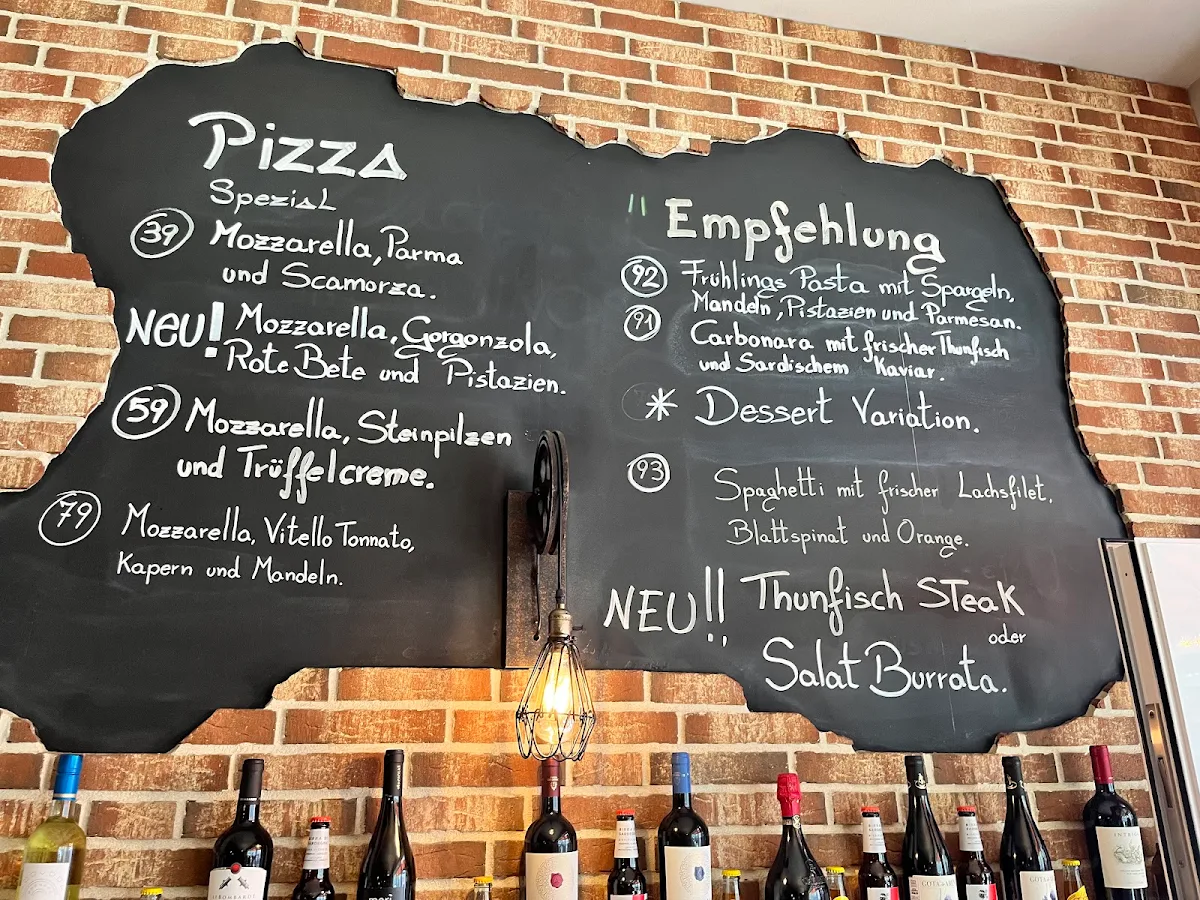 Pizza
Spezial
39 Mozzarella, Parma
und Scamorza.
Neu! Mozzarella, Gorgonzola,
Rote Bete und Pistazien.
59 Mozzarella, Steinpilzen
und Trüffelcreme.
79 Mozzarella, Vitello Tonnato,
Kapern und Mandeln.
" Empfehlung
92 Frühlings Pasta mit Spargeln,
Mandeln, Pistazien und Parmesan.
91 Carbonara mit frischer Thunfisch
und Sardischem Kaviar.
* Dessert Variation.
93 Spaghetti mit frischer Lachsfilet,
Blattspinat und Orange.
NEU!! Thunfisch STeak
oder
Salat Burrata.